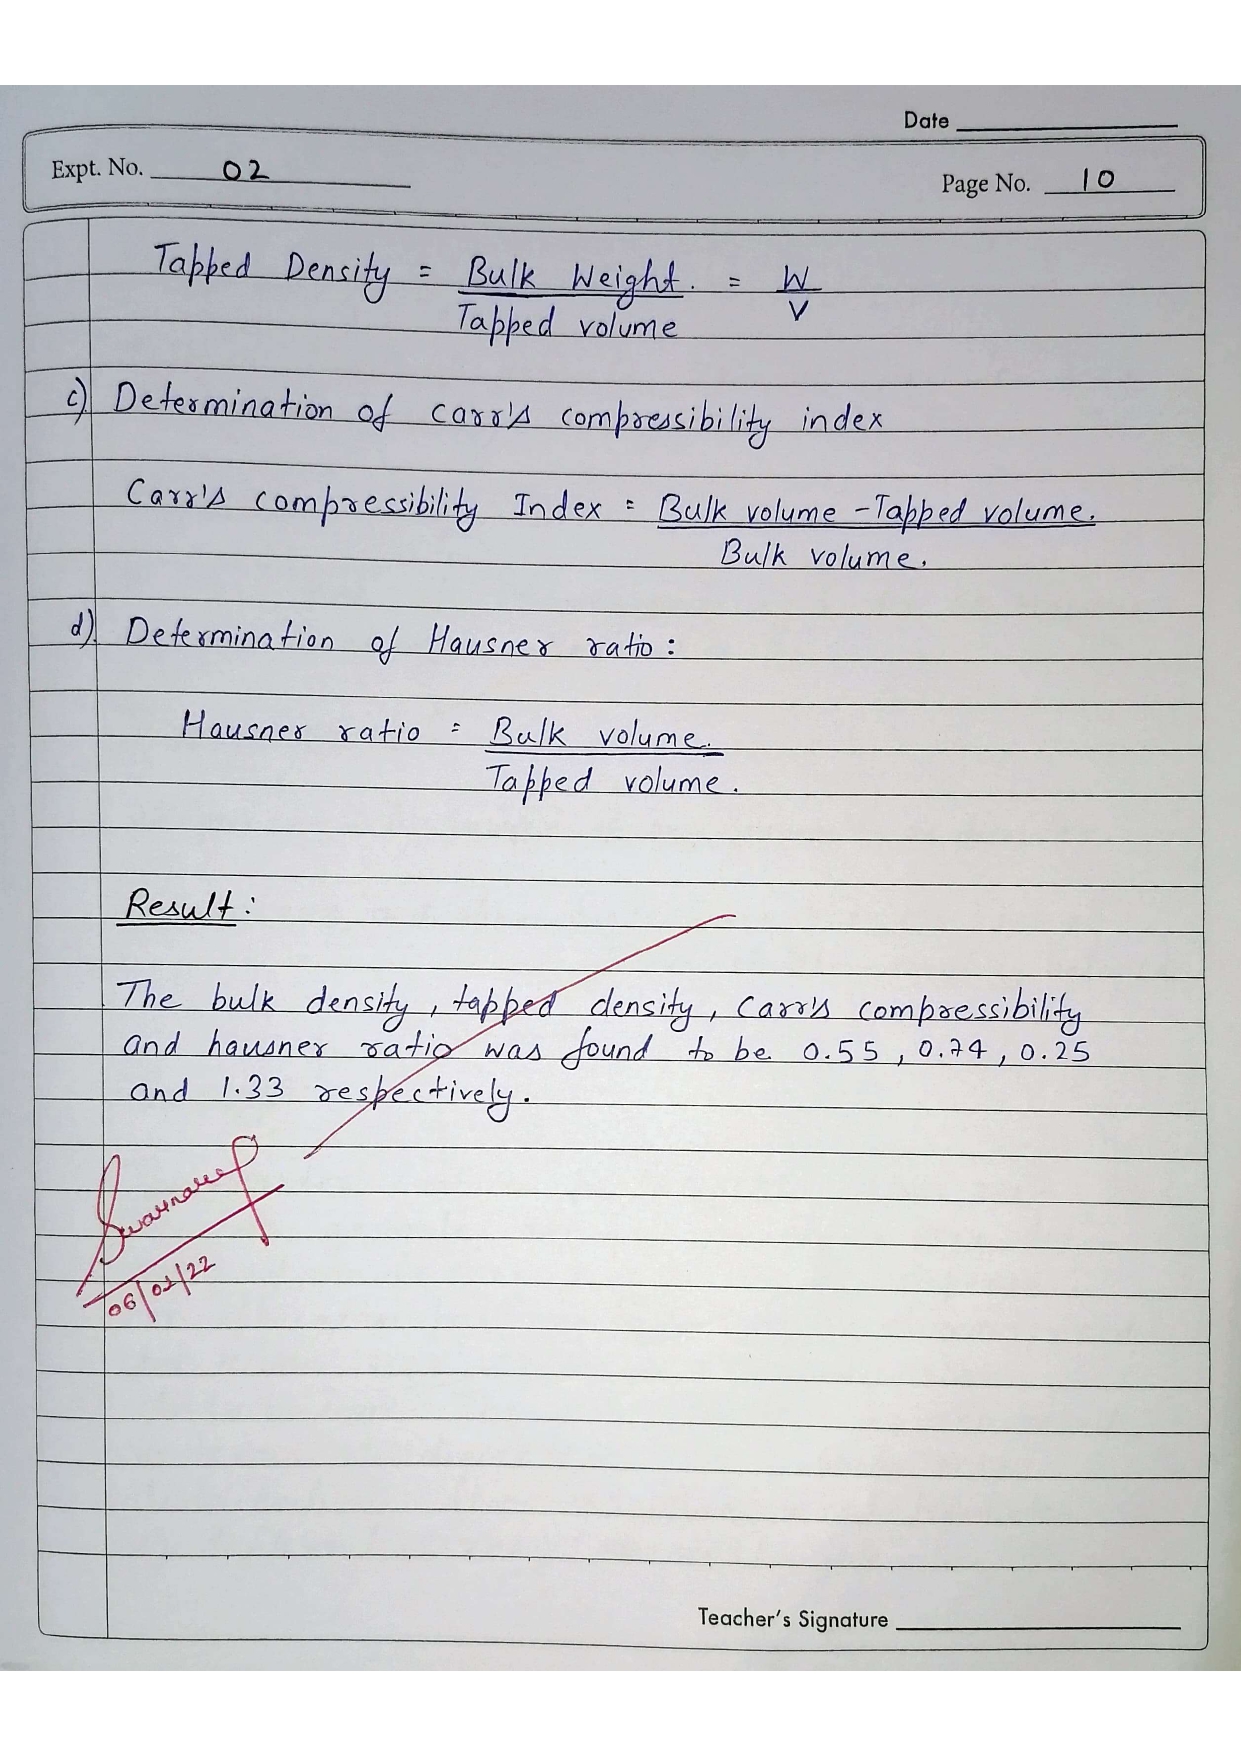 Date
Expt. No. 02
Page No. 10
Tapped Density = Bulk Weight. = W
Tapped volume V
c) Determination of carr's compressibility index
Carr's compressibility Index = Bulk volume - Tapped volume.
Bulk volume.
d) Determination of Hausner ratio:
Hausner ratio = Bulk volume.
Tapped volume.
Result:
The bulk density, tapped density, Carr's compressibility
and hausner ratio was found to be 0.55, 0.74, 0.25
and 1.33 respectively.
06/01/22
Teacher's Signature